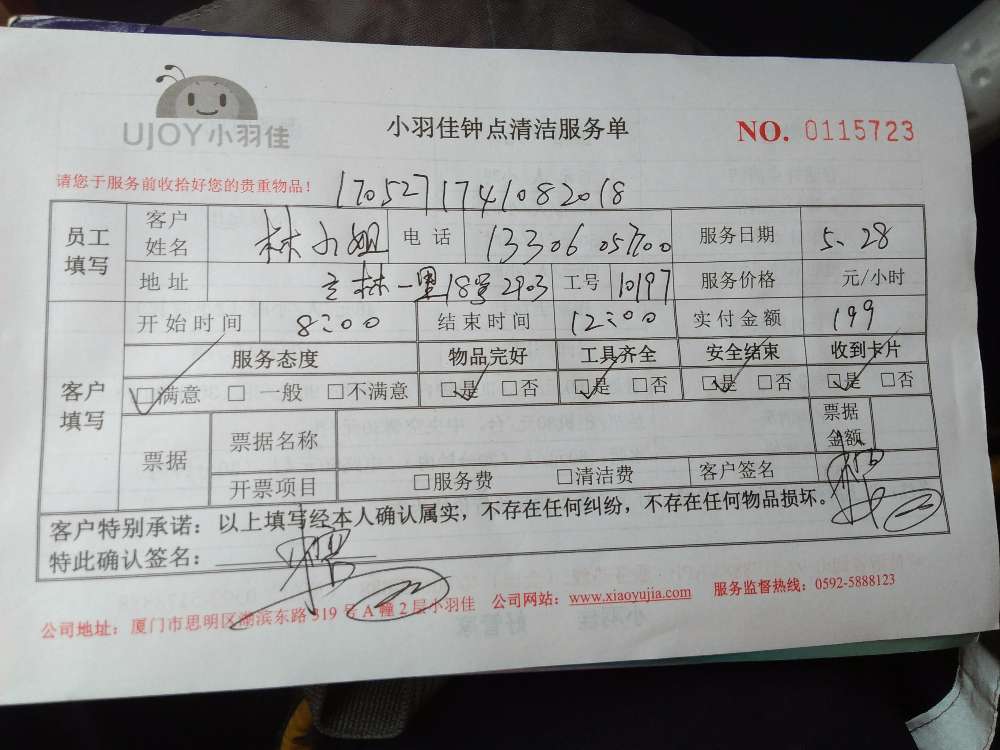 UJOY小羽佳
小羽佳钟点清洁服务单
NO. 0115723
请您于服务前收拾好您的贵重物品!
1705271741082018
员工填写 客户姓名 林小姐 电话 服务日期 5.28
地址 林一里18号2903 工号 10197 服务价格 元/小时
客户填写 开始时间 8:00 结束时间 12:00 实付金额 199
服务态度 物品完好 工具齐全 安全结束 收到卡片
☑满意 □一般 □不满意 ☑是 □否 ☑是 □否 ☑是 □否 ☑是 □否
票据 票据名称 票据金额
开票项目 □服务费 □清洁费 客户签名
客户特别承诺:以上填写经本人确认属实,不存在任何纠纷,不存在任何物品损坏。
特此确认签名:
公司地址:厦门市思明区湖滨东路319号A幢2层小羽佳 公司网站:www.xiaoyujia.com 服务监督热线:0592-5888123